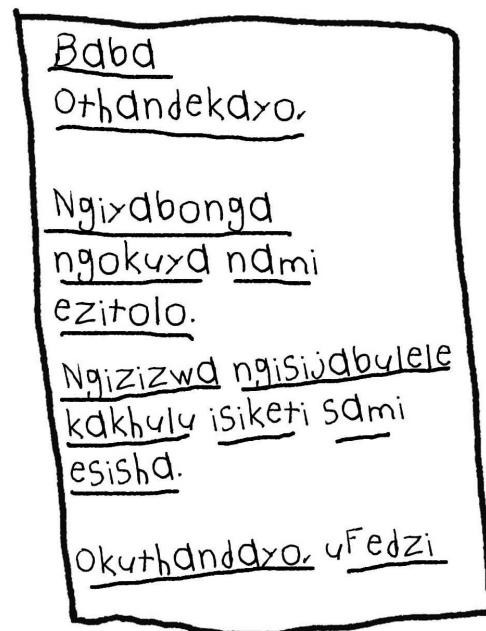 Baba
Othandekayo,
Ngiyabonga
ngokuya nami
ezitolo.
Ngizizwa ngisijabulele
kakhulu isiketi sami
esisha.
Okuthandayo, uFedzi